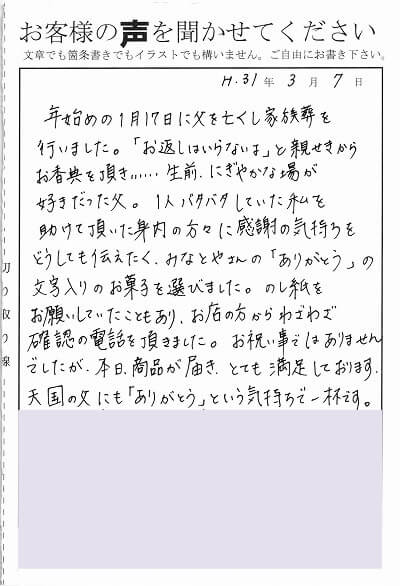 お客様の声を聞かせてください
文章でも箇条書きでもイラストでも構いません。ご自由にお書き下さい。
H.31年 3月 7日
年始めの1月17日に父を亡くし家族葬を
行いました。「お返しはいらないよ」と親せきから
お香典を頂き……生前、にぎやかな場が
好きだった父。1人バタバタしていた私を
助けて頂いた身内の方々に感謝の気持ちを
どうしても伝えたく、みなとやさんの「ありがとう」の
文字入りのお菓子を選びました。のし紙を
お願いしていたこともあり、お店の方からわざわざ
確認の電話を頂きました。お祝い事ではありません
でしたが、本日、商品が届き、とても満足しております。
天国の父にも「ありがとう」という気持ちで一杯です。
切り取り線